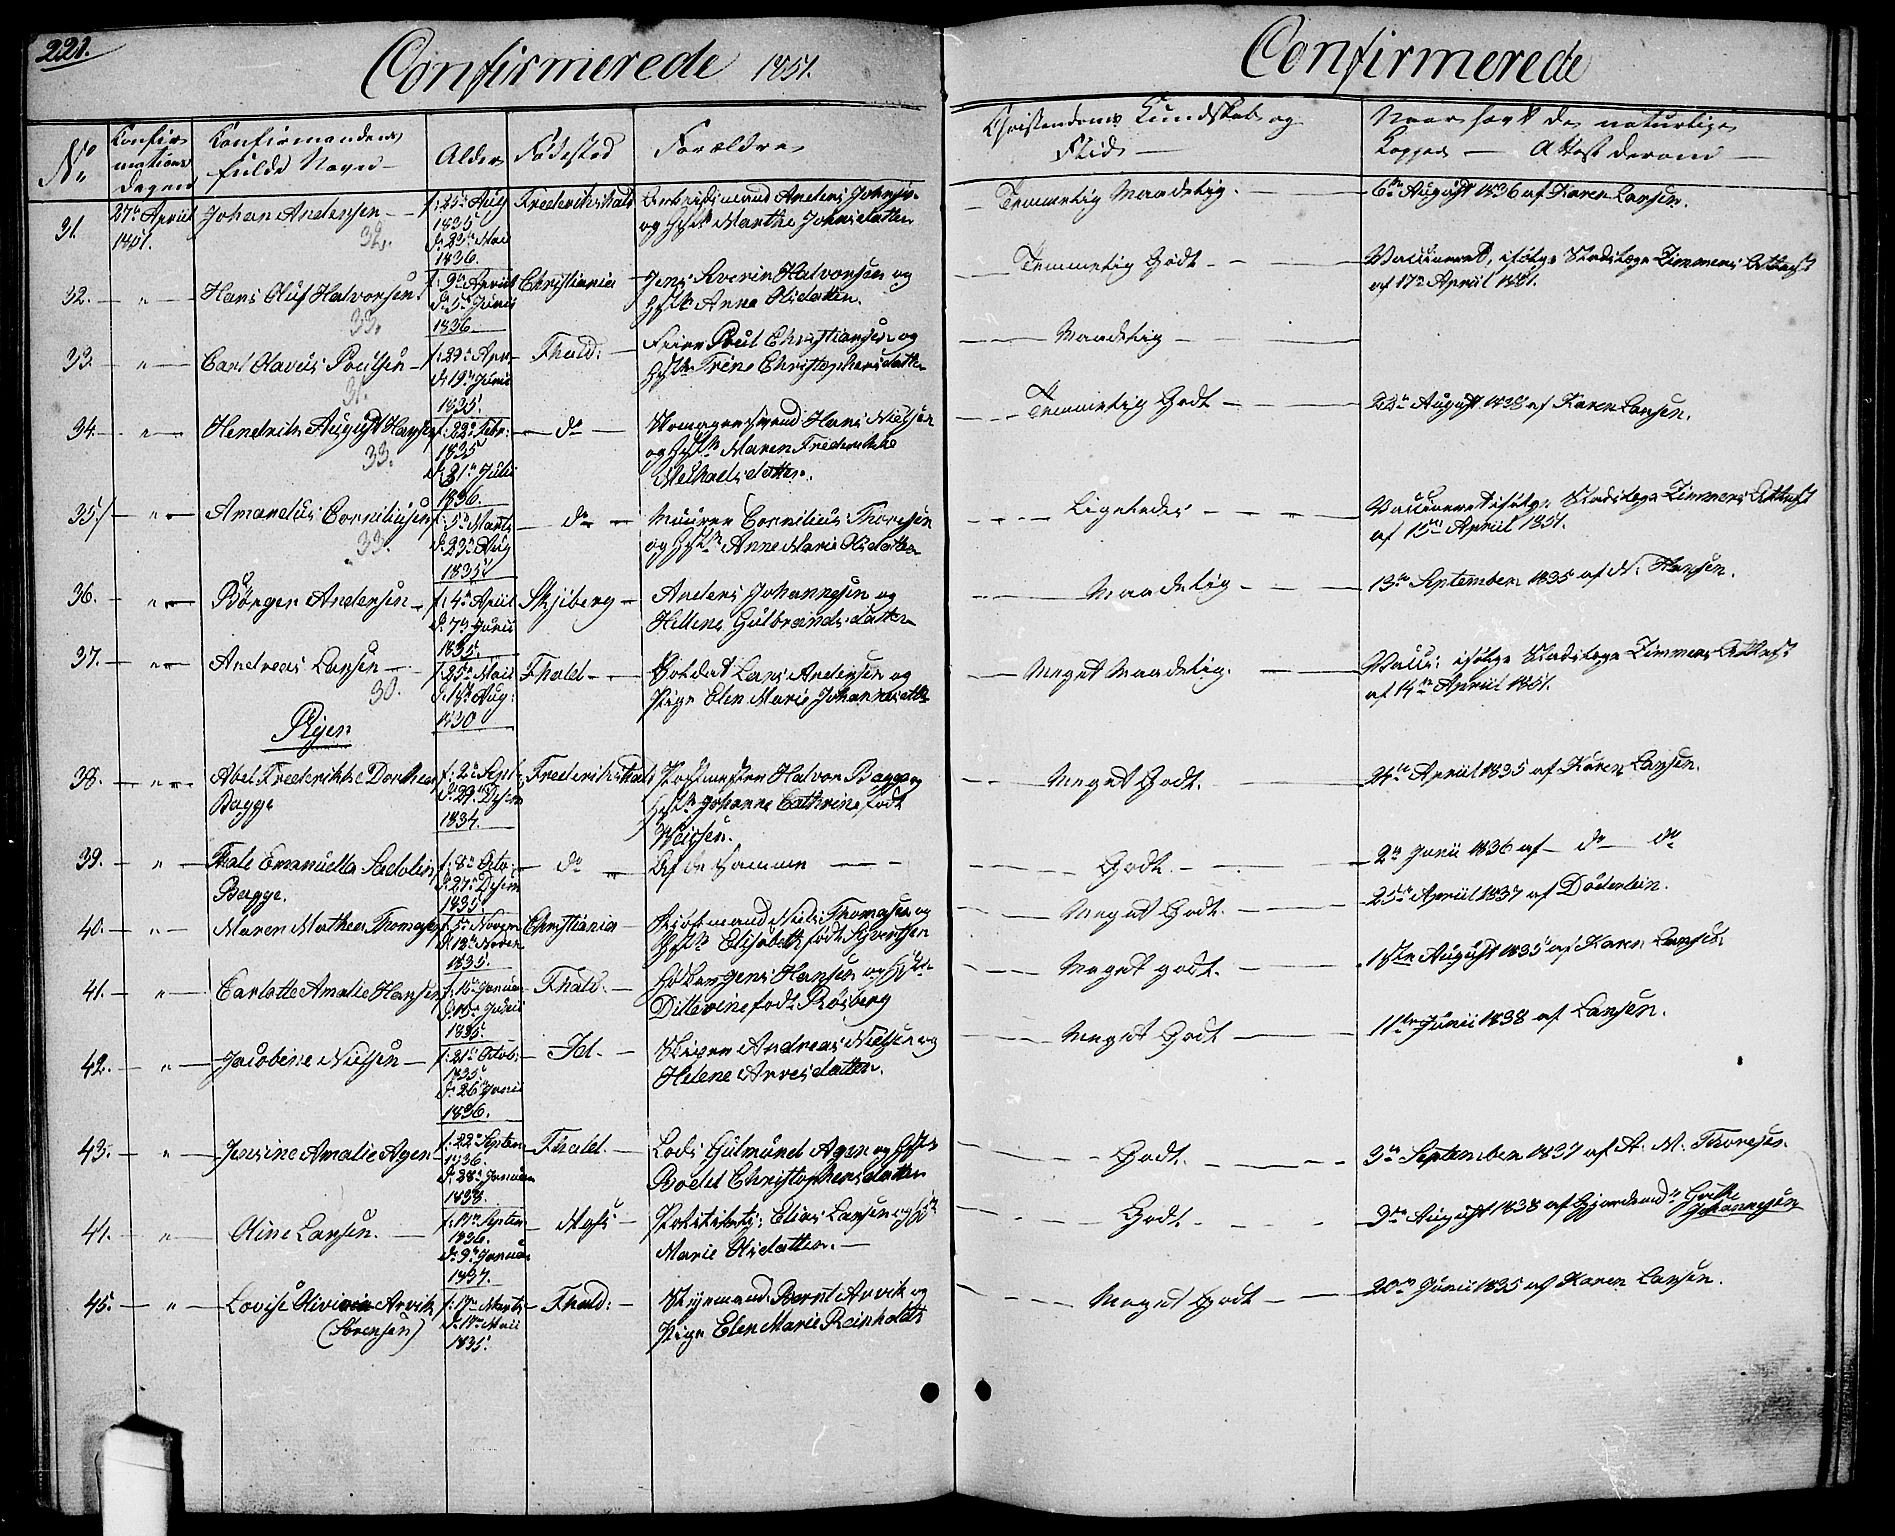 221.
Confirmerede 1851.
Confirmerede
No
Confir
mations
Dagen
Confirmandens
fulde Navn
Alder
Fødested
Forældre
Christendoms Kundskab og
Flid
Naar havt de naturlige
Kopper — Attest derom
31.
27de April
1851.
Johan Andersen
32.
f: 25de Aug
1835
d: 23de Mai
1836.
Frederikshald
Arbeidsmand Anders Johnsen
og Hstr Marthe Johnsdatter
Temmelig Maadelig.
6te August 1836 af Karen Larsen.
32. — " —
Hans Oluf Halvorsen
33.
f: 9de April
d: 5te Junii
1836.
Christiania
Jens Severin Halvorsen og
Hstr Anna Olsdatter.
Temmelig Godt
Vaccineret, ifølge Stadslæge Zimmers Attest
af 17de April 1851.
33. — " —
Carl Olavus Poulsen
31.
f: 29de Apr
d: 19de Junii
1835.
Fhald:
Feier Poul Christiansen og
Hstr Trine Christophersdatter
Maadelig
34. — " —
Hendrik August Hansen
33.
f: 22de Febr:
1835
d: 31te Julii
1836.
do
Skomagersvend Hans Nielsen
og Hstr Maren Frederikke
Michaelsdatter.
Temmelig Godt
22de August 1838 af Karen Larsen.
35. — " —
Amandus Corniliusen
33.
f: 5te Marts
d: 23de Aug
1835
do
Muurer Cornilius Thoresen
og Hstr Anne Marie Olsdatter
Ligeledes
Vaccineret ifølge Stadslæge Zimmers Attest
af 15de April 1851.
36. — " —
Børger Andersen
f: 4de April
d: 7de Junii
1835.
Skjeberg
Anders Johannesen og
Hellene Gulbrandsdatter
Maadelig
13de September 1835 af N. Hansen.
37. — " —
Andreas Larsen
30.
f: 25de Mai
d: 15de Aug:
1830
Fhald
Soldat Lars Andersen og
Pige Elen Marie Johannesdtr
Meget Maadelig.
Vacci: ifølge Stadslæge Zimmers Attest
af 14de April 1851.
Piger
38. — " —
Abel Frederikke Dorthea
Bagge
f: 2de Sept
d: 29de Decem
1834.
Frederikshald
Postmester Halvor Bagge og
Hstr Johanne Cathrine født
Weissen.
Meget Godt.
24de April 1835 af Karen Larsen.
39. — " —
Thale Emanuella
Bagge.
f: 8de Octo:
d: 27de Decem
1835
do
Af de samme
Godt.
2de Junii 1836 af do do
40. — " —
Maren Mathea Thomasen
f: 5te Novem
d: 12te Novem
1835.
Christiania
Niels Thomasen og
Hstr Elisabeth født Syvertsen
Meget Godt.
25de April 1837 af Døderlein.
41. — " —
Carlotte Amalie Hansen
f: 16de Januar
d: 15de Junii
1835.
Fhald.
Jens Hansen og Hstr
født Rosberg
Meget godt.
18de August 1835 af Karen Larsen.
42. — " —
Jacobine Nielsen
f: 21de Octob:
1835.
d: 26de Junii
1836.
Id.
Skipper Andreas Nielsen og
Helene Arvesdatter.
Meget Godt
11te Junii 1838 af Larsen.
43. — " —
Jensine Amalie Agen
f: 22de Septem
1836.
d: 28de Januar
1838.
Fhald.
Lods Gulmund Agen og Hstr
Bodel Christophersdatter
Godt.
3de September 1837 af A. M. Thoresen.
44. — " —
Oline Larsen.
f: 17de Septem
1836.
d: 9de Januar
1837.
Elias Larsen og Hstr
Marie Olsdatter.
Godt
3de August 1838 af Gjordemdr Grethe
Johannesen
45. — " —
Lovise Arvik
(Sørensen)
f: 17de Marts
d: 17de Mai
1835.
Fhald:
Styrmand Bernt Arvik og
Pige Elen Marie Reinholdtr
Meget Godt
20de Junii 1835 af Karen Larsen.